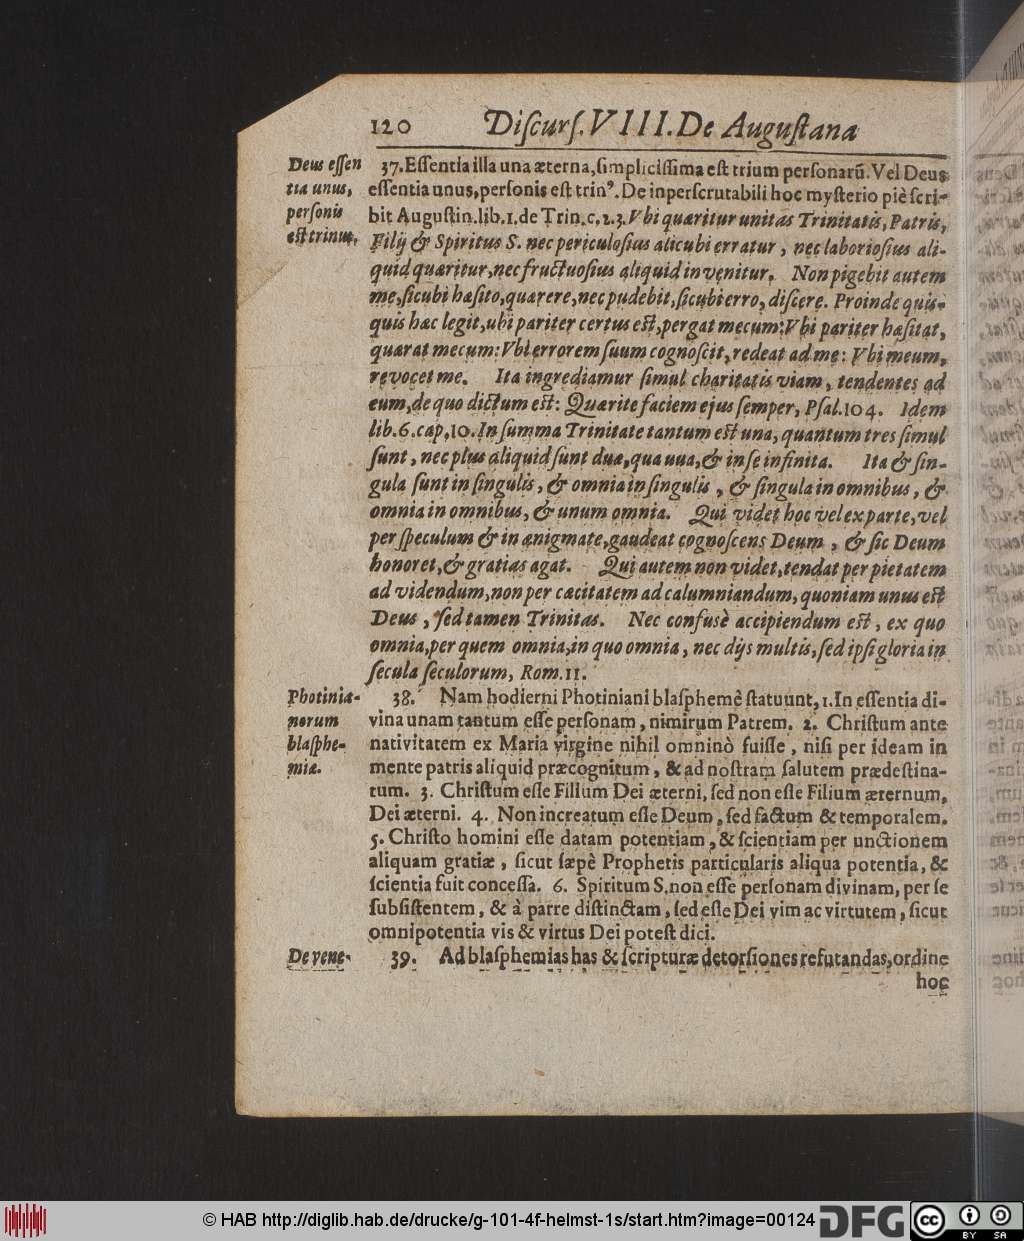 120 Diſcurſ. VIII. De Auguſtana
Deus eſſen
tia unus,
perſonis
eſt trinus.
37. Eſſentia illa una æterna, ſimpliciſſima eſt trium perſonarū. Vel Deus
eſſentia unus, perſonis eſt trinꝰ. De inperſcrutabili hoc myſterio piè ſcri-
bit Auguſtin. lib. 1. de Trin. c. 2. 3. Vbi quæritur unitas Trinitatis, Patris,
Filij & Spiritus S. nec periculoſius alicubi erratur, nec laborioſius ali-
quid quæritur, nec fructuoſius aliquid invenitur. Non pigebit autem
me, ſicubi hæſito, quærere, nec pudebit, ſicubi erro, diſcere. Proinde quis-
quis hæc legit, ubi pariter certus eſt, pergat mecum: Vbi pariter hæſitat,
quærat mecum: Vbi errorem ſuum cognoſcit, redeat ad me: Vbi meum,
revocet me. Ita ingrediamur ſimul charitatis viam, tendentes ad
eum, de quo dictum eſt: Quærite faciem ejus ſemper, Pſal. 104. Idem
lib. 6. cap. 10. In ſumma Trinitate tantum eſt una, quantum tres ſimul
ſunt, nec plus aliquid ſunt duæ, qua uua, & in ſe infinita. Ita & ſin-
gula ſunt in ſingulis, & omnia in ſingulis, & ſingula in omnibus, &
omnia in omnibus, & unum omnia. Qui videt hoc vel ex parte, vel
per ſpeculum & in ænigmate, gaudeat cognoſcens Deum, & ſic Deum
honoret, & gratias agat. Qui autem non videt, tendat per pietatem
ad videndum, non per cæcitatem ad calumniandum, quoniam unus eſt
Deus, ſed tamen Trinitas. Nec confusè accipiendum eſt, ex quo
omnia, per quem omnia, in quo omnia, nec dijs multis, ſed ipſi gloria in
ſecula ſeculorum, Rom. 11.
Photinia-
norum
blaſphe-
miæ.
38. Nam hodierni Photiniani blaſphemè ſtatuunt, 1. In eſſentia di-
vina unam tantum eſſe perſonam, nimirum Patrem. 2. Chriſtum ante
nativitatem ex Maria virgine nihil omninò fuiſſe, niſi per ideam in
mente patris aliquid præcognitum, & ad noſtram ſalutem prædeſtina-
tum. 3. Chriſtum eſſe Filium Dei æterni, ſed non eſſe Filium æternum,
Dei æterni. 4. Non increatum eſſe Deum, ſed factum & temporalem.
5. Chriſto homini eſſe datam potentiam, & ſcientiam per unctionem
aliquam gratiæ, ſicut ſæpè Prophetis particularis aliqua potentia, &
ſcientia fuit conceſſa. 6. Spiritum S. non eſſe perſonam divinam, per ſe
ſubſiſtentem, & à patre diſtinctam, ſed eſſe Dei vim ac virtutem, ſicut
omnipotentia vis & virtus Dei poteſt dici.
De vene-
39. Ad blaſphemias has & ſcripturæ detorſiones refutandas, ordine
hoc
© HAB http://diglib.hab.de/drucke/g-101-4f-helmst-1s/start.htm?image=00124
DFG
cc BY SA